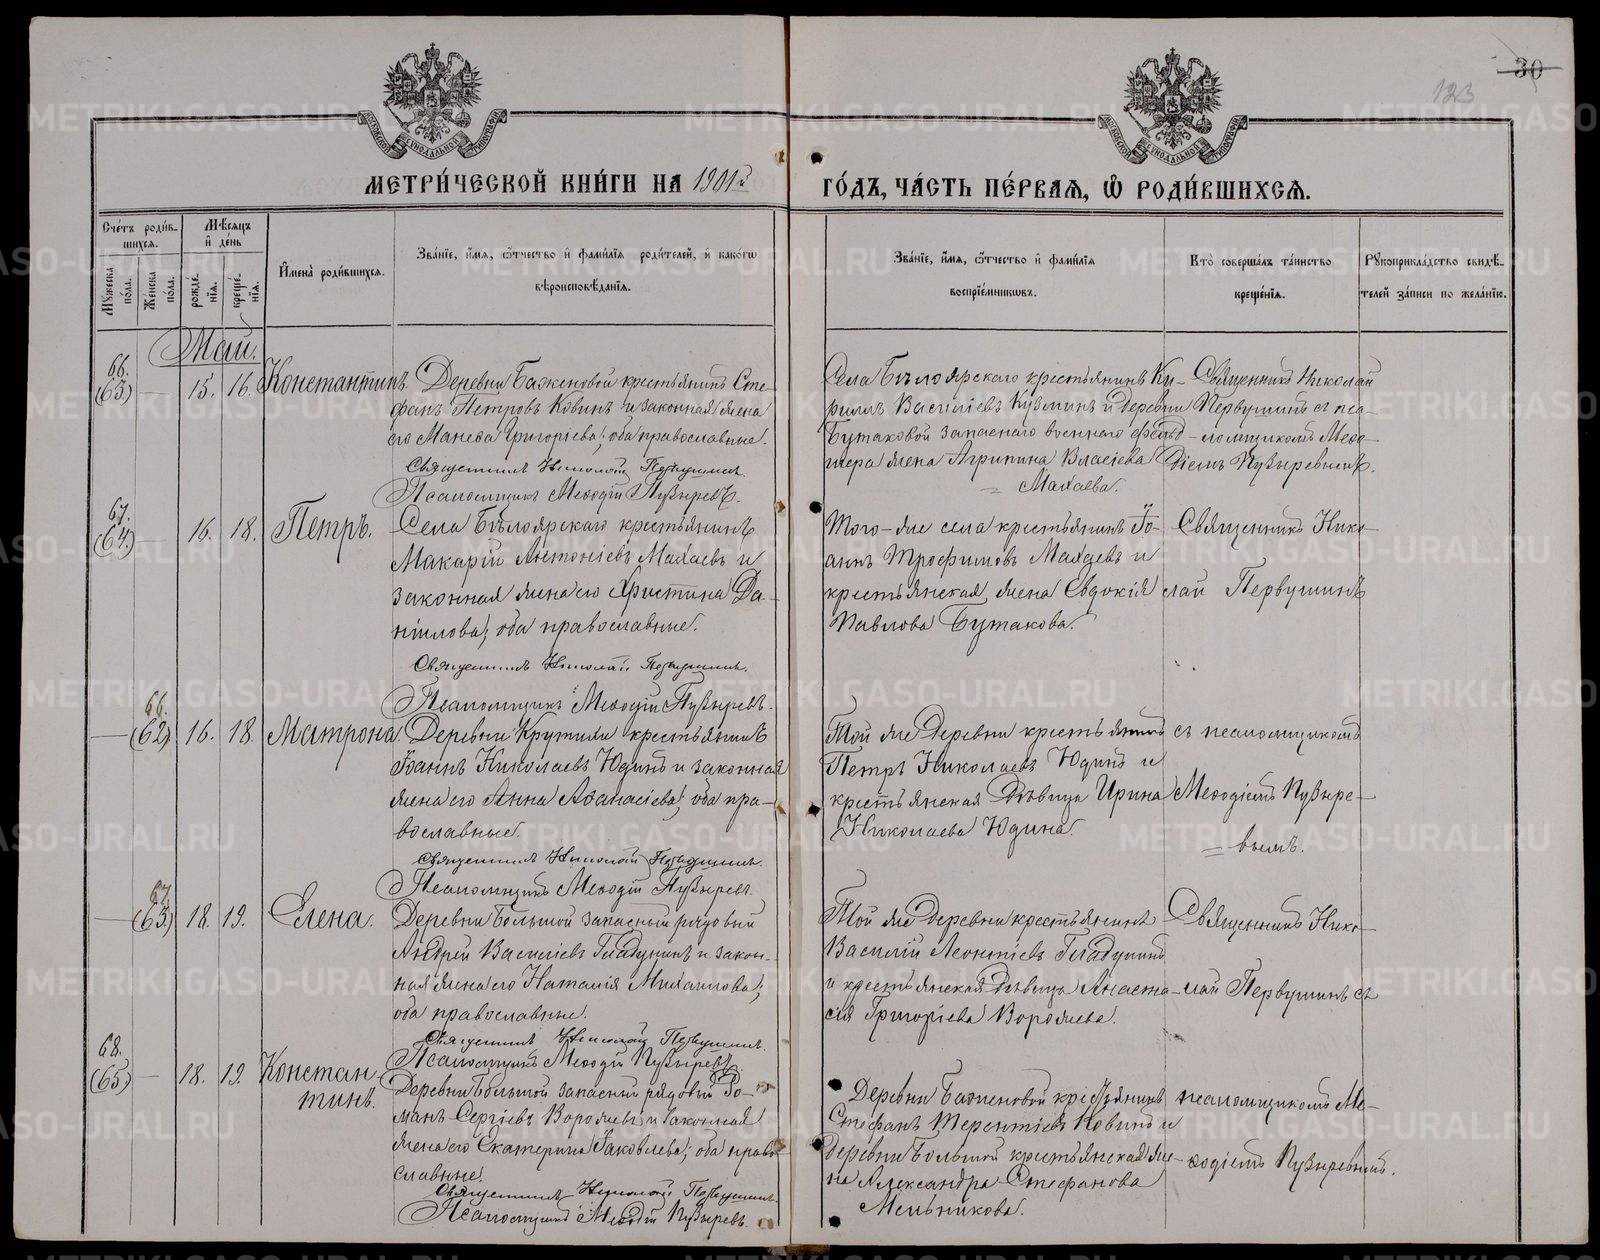 30
123
МЕТРИ́ЧЕСКОЙ КНИ́ГИ НА 1901й ГО́ДЪ, ЧА́СТЬ ПЕ́РВАЯ, Ѡ РОДИ́ВШИХСЯ.
Сче́тъ роди́в-
шихся.
Мꙋжеска по́ла.
Же́нска по́ла.
Мѣ́сяцъ и де́нь
рожде́нїя.
креще́нїя.
И҆мена̀ роди́вшихся.
Зва́нїе, и҆́мя, ѻ҆́тчество и҆ фамилїя роди́телей, и҆ како́гѡ
вѣроисповѣ́данїя.
Зва́нїе, и҆́мя, ѻ҆́тчество и҆ фами́лїя
воспрїе́мникѡвъ.
Кто̀ соверша́лъ та́инство
креще́нїя.
Рꙋкоприкла́дство свидѣ́-
телей за́писи по жела́нїю.
Май.
66.
(63) — 15. 16. Константинъ.
Деревни Баженовой крестьянинъ Сте-
фанъ Петровъ Ковинъ и законная жена
его Манефа Григорiева; оба православные.
Священникъ Николай Первушинъ.
Псаломщикъ Меѳодiй Пузыревъ.
Села Бѣлоярскаго крестьянинъ Ки-
риллъ Василiевъ Кузминъ и деревни
Бутаковой запаснаго военнаго фельд-
шера жена Агрипина Власiева
Махаева.
Священникъ Николай
Первушинъ съ пса-
ломщикомъ Меѳо-
дiемъ Пузыревымъ.
67.
(64) — 16. 18. Петръ.
Села Бѣлоярскаго крестьянинъ
Макарiй Антонiевъ Махаевъ и
законная жена его Христина Да-
нiилова; оба православные.
Священникъ Николай Первушинъ.
Псаломщикъ Меѳодiй Пузыревъ.
Того-же села крестьянинъ Iо-
аннъ Трофимовъ Махаевъ и
крестьянская жена Евдокiя
Павлова Бутакова.
Священникъ Нико-
лай Первушинъ
66.
— (62) 16. 18. Матрона.
Деревни Крутихи крестьянинъ
Iоаннъ Николаевъ Юдинъ и законная
жена его Анна Аѳанасiева; оба пра-
вославные.
Священникъ Николай Первушинъ.
Псаломщикъ Меѳодiй Пузыревъ.
Той же деревни крестьянинъ
Петръ Николаевъ Юдинъ и
крестьянская дѣвица Ирина
Николаева Юдина.
съ псаломщикомъ
Меѳодiемъ Пузыре-
вымъ.
67.
— (63) 18. 19. Елена.
Деревни Большой запасный рядовый
Андрей Василiевъ Гладунинъ и закон-
ная жена его Наталiя Михаилова;
оба православные.
Священникъ Николай Первушинъ.
Псаломщикъ Меѳодiй Пузыревъ.
Той же деревни крестьянинъ
Василiй Леонтiевъ Гладунинъ
и крестьянская дѣвица Анаста-
сiя Григорiева Ворожева.
Священникъ Нико-
лай Первушинъ съ
68.
(65) — 18. 19. Констан-
тинъ.
Деревни Большой запасный рядовый Ро-
манъ Сергiевъ Ворожевъ и законная
жена его Екатерина Iаковлева; оба право-
славные.
Священникъ Николай Первушинъ.
Псаломщикъ Меѳодiй Пузыревъ.
Деревни Баженовой крестьянинъ
Стефанъ Терентiевъ Ковинъ и
деревни Большой крестьянская же-
на Александра Стефанова
Мельникова.
псаломщикомъ Ме-
ѳодiемъ Пузыревымъ.
METRIKI.GASO-URAL.RU